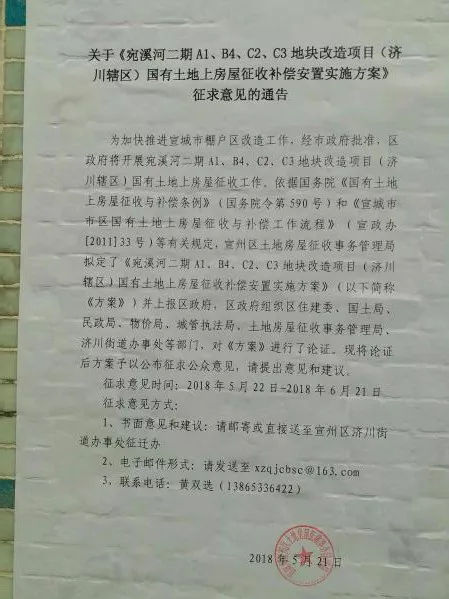 关于《宛溪河二期 A1、B4、C2、C3 地块改造项目（济
川辖区）国有土地上房屋征收补偿安置实施方案》
征求意见的通告
为加快推进宣城市棚户区改造工作，经市政府批准，区
政府将开展宛溪河二期 A1、B4、C2、C3 地块改造项目（济
川辖区）国有土地上房屋征收工作。依据国务院《国有土地
上房屋征收与补偿条例》（国务院令第 590 号）和《宣城市
市区国有土地上房屋征收与补偿工作流程》（宣政办
[2011]33 号）等有关规定，宣州区土地房屋征收事务管理局
拟定了《宛溪河二期 A1、B4、C2、C3 地块改造项目（济川
辖区）国有土地上房屋征收补偿安置实施方案》（以下简称
《方案》）并上报区政府，区政府组织区住建委、国土局、
民政局、物价局、城管执法局、土地房屋征收事务管理局、
济川街道办事处等部门，对《方案》进行了论证。现将论证
后方案予以公布征求公众意见，请提出意见和建议。
征求意见时间：2018 年 5 月 22 日-2018 年 6 月 21 日
征求意见方式：
1、书面意见和建议：请邮寄或直接送至宣州区济川街
道办事处征迁办
2、电子邮件形式：请发送至 xzqjcbsc@163.com
3、联系电话：黄双选（13865336422）
2018 年 5 月 21 日